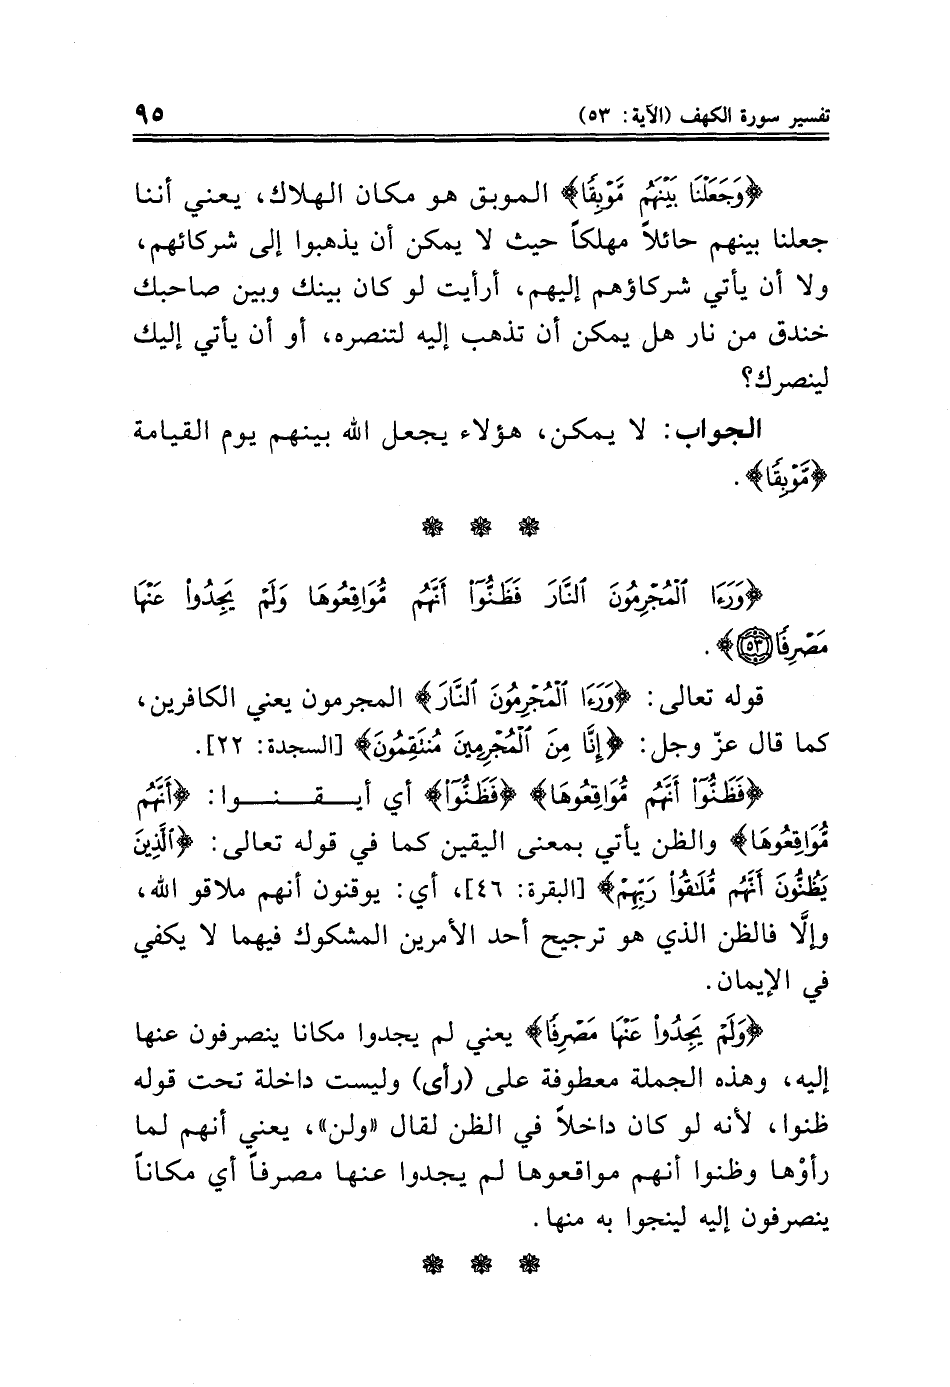 تفسير سورة الكهف (الآية: ٥٣) ٩٥
﴿وَجَعَلْنَا بَيْنَهُم مَّوْبِقًا﴾ الموبق هو مكان الهلاك، يعني أننا
جعلنا بينهم حائلاً مهلكاً حيث لا يمكن أن يذهبوا إلى شركائهم،
ولا أن يأتي شركاؤهم إليهم، أرأيت لو كان بينك وبين صاحبك
خندق من نار هل يمكن أن تذهب إليه لتنصره، أو أن يأتي إليك
لينصرك؟
الجواب: لا يمكن، هؤلاء يجعل الله بينهم يوم القيامة
﴿مَّوْبِقًا﴾.
﴿وَرَءَا ٱلْمُجْرِمُونَ ٱلنَّارَ فَظَنُّوٓا۟ أَنَّهُم مُّوَاقِعُوهَا وَلَمْ يَجِدُوا۟ عَنْهَا
مَصْرِفًا ٥٣﴾.
قوله تعالى: ﴿وَرَءَا ٱلْمُجْرِمُونَ ٱلنَّارَ﴾ المجرمون يعني الكافرين،
كما قال عزّ وجل: ﴿إِنَّا مِنَ ٱلْمُجْرِمِينَ مُنتَقِمُونَ﴾ [السجدة: ٢٢].
﴿فَظَنُّوٓا۟ أَنَّهُم مُّوَاقِعُوهَا﴾ ﴿فَظَنُّوٓا۟﴾ أي أيـقـنـوا: ﴿أَنَّهُم
مُّوَاقِعُوهَا﴾ والظن يأتي بمعنى اليقين كما في قوله تعالى: ﴿ٱلَّذِينَ
يَظُنُّونَ أَنَّهُم مُّلَـٰقُوا۟ رَبِّهِمْ﴾ [البقرة: ٤٦]، أي: يوقنون أنهم ملاقو الله،
وإلَّا فالظن الذي هو ترجيح أحد الأمرين المشكوك فيهما لا يكفي
في الإيمان.
﴿وَلَمْ يَجِدُوا۟ عَنْهَا مَصْرِفًا﴾ يعني لم يجدوا مكانا ينصرفون عنها
إليه، وهذه الجملة معطوفة على (رأى) وليست داخلة تحت قوله
ظنوا، لأنه لو كان داخلاً في الظن لقال «ولن»، يعني أنهم لما
رأوْها وظنوا أنهم مواقعوها لم يجدوا عنها مصرفاً أي مكاناً
ينصرفون إليه لينجوا به منها.